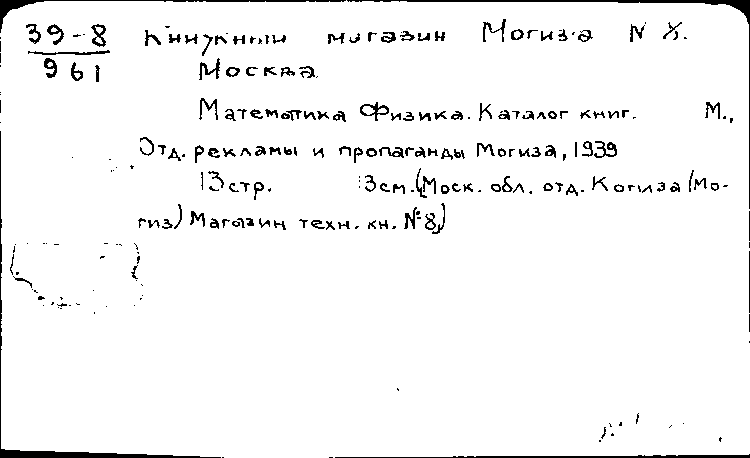 39-8 Книжный магазин Могиз'а N 8.
961 Москва
Математика Физика. Каталог книг. М.,
Отд. рекламы и пропаганды Могиза, 1939
13 стр. 13 см. (Моск. обл. отд. Когиза (Мо-
гиз) Магазин техн. кн. № 8)